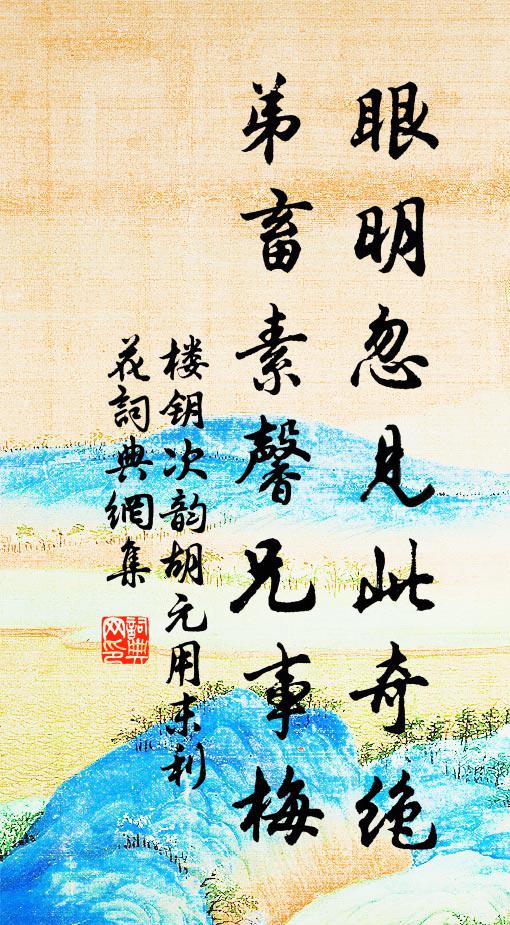 眼明忽见此奇绝
弟畜素馨兄事梅
楼钥次韵胡元用末利
花詞典網集
詞典网印